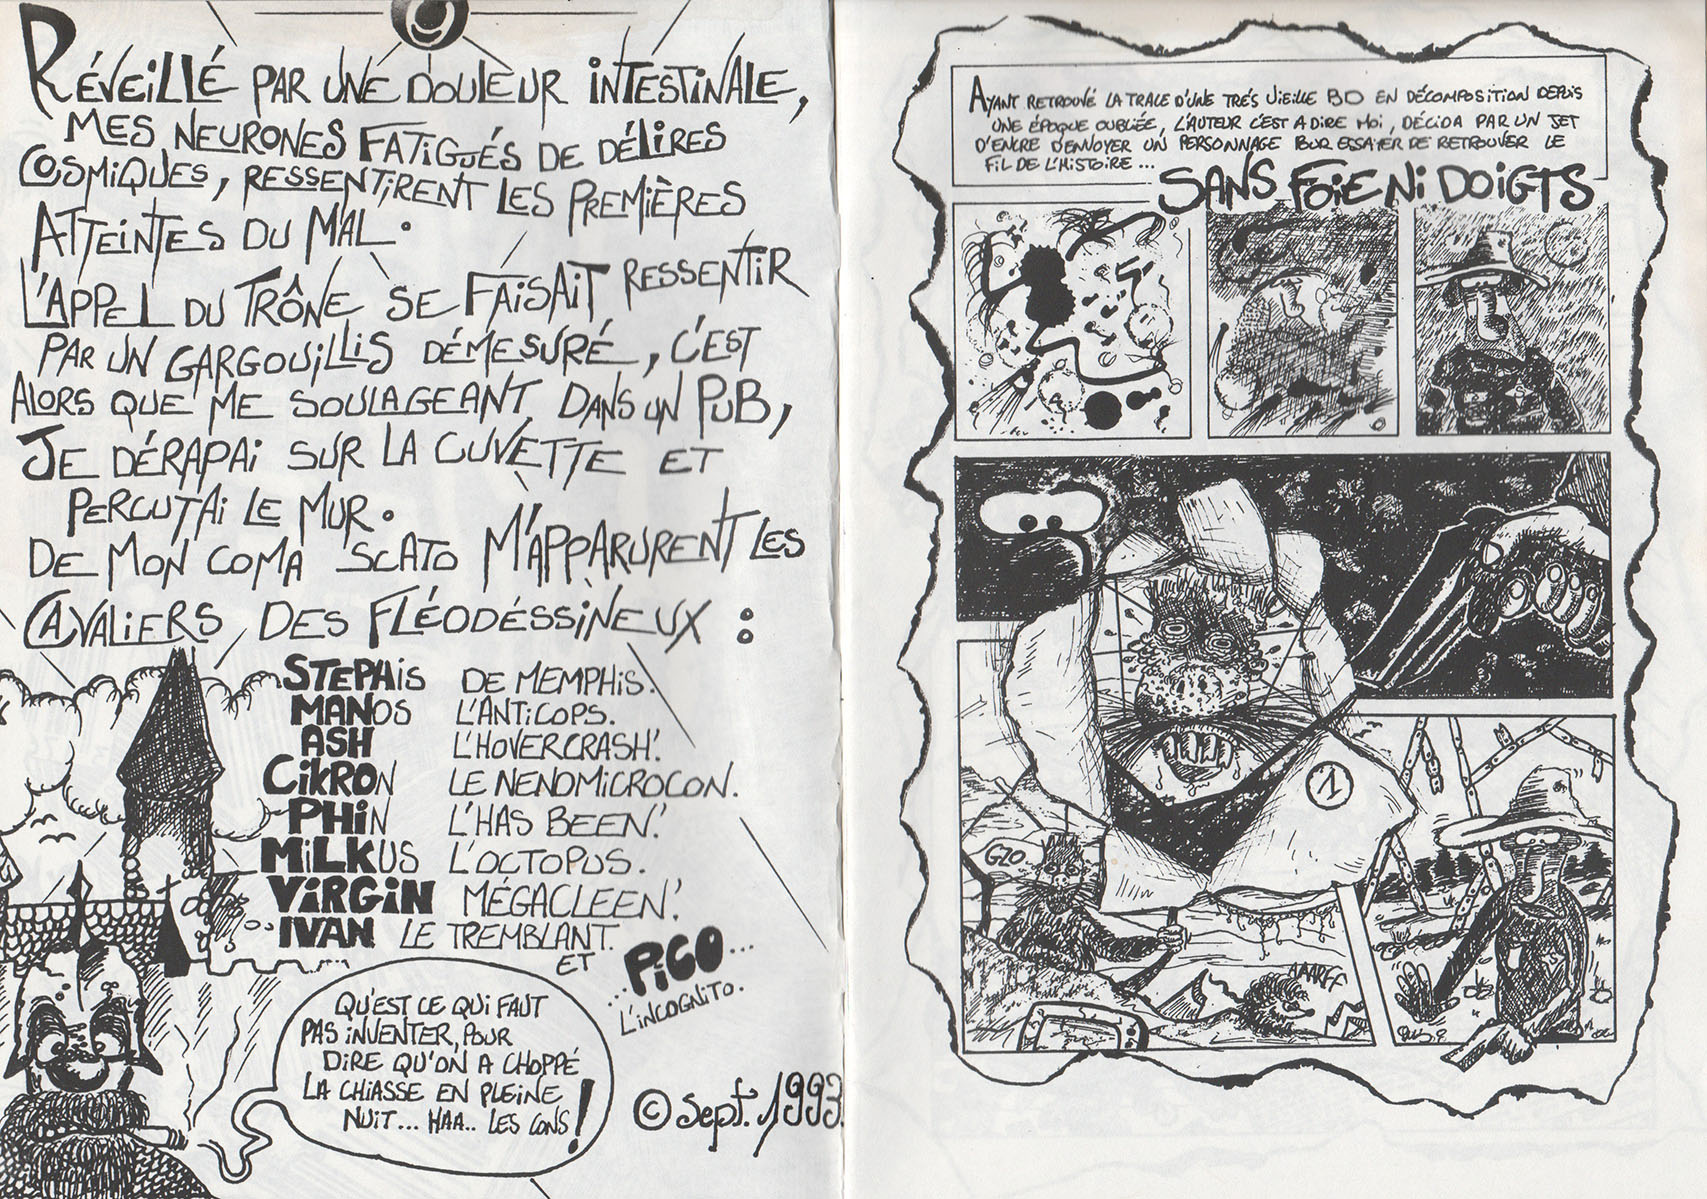 RÉVEILLÉ PAR UNE DOULEUR INTESTINALE,
MES NEURONES FATIGUÉS DE DÉLIRES
COSMIQUES, RESSENTIRENT LES PREMIÈRES
ATTEINTES DU MAL.
L'APPEL DU TRÔNE SE FAISAIT RESSENTIR
PAR UN GARGOUILLIS DÉMESURÉ, C'EST
ALORS QUE ME SOULAGEANT DANS UN PUB,
JE DÉRAPAI SUR LA CUVETTE ET
PERCUTAI LE MUR.
DE MON COMA SCATO M'APPARURENT LES
CAVALIERS DES FLÉODÉSSINEUX :
STEPHIS DE MEMPHIS.
MANOS L'ANTICOPS.
ASH L'HOVERCRASH!
CIKRON LE NENOMICROCON.
PHIN L'HAS BEEN!
MILKUS L'OCTOPUS.
VIRGIN MÉGACLEEN!
IVAN LE TREMBLANT.
ET
...PICO...
L'INCOGNITO.
QU'EST CE QUI FAUT
PAS INVENTER, POUR
DIRE QU'ON A CHOPPÉ
LA CHIASSE EN PLEINE
NUIT... HAA.. LES CONS!
© Sept. 1993
AYANT RETROUVÉ LA TRACE D'UNE TRÉS VIEILLE BD EN DÉCOMPOSITION DEPUIS
UNE ÉPOQUE OUBLIÉE, L'AUTEUR C'EST A DIRE MOI, DÉCIDA PAR UN JET
D'ENCRE D'ENVOYER UN PERSONNAGE POUR ESSAYER DE RETROUVER LE
FIL DE L'HISTOIRE...
SANS FOIE NI DOIGTS
1
GZO
AAARFF